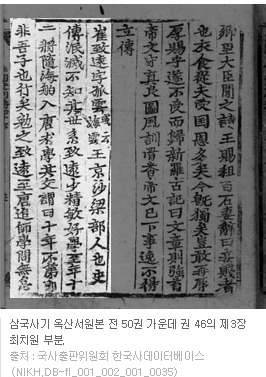 鄕大臣聞之請王賜租百石妻辭曰妾賤者
也衣食從夫受國恩多矣今旣獨矣豈敢再辱
厚賜乎遂不受而歸新羅古記曰文章則強首
帝文守眞良圖風訓骨沓帝文已下事逸不得
立傳
崔致遠字孤雲或云海雲王京沙梁部人也史
傳泯滅不知其世系致遠少精敏好學至年十
二將隨海舶入唐求學其父謂曰十年不第卽
非吾子也行矣勉之致遠至唐追師學問無怠
삼국사기 옥산서원본 전 50권 가운데 권 46의 제3장
최치원 부분.
출처 : 국사편찬위원회 한국사데이터베이스
(NIKH,DB-fl_001_002_001_0035)